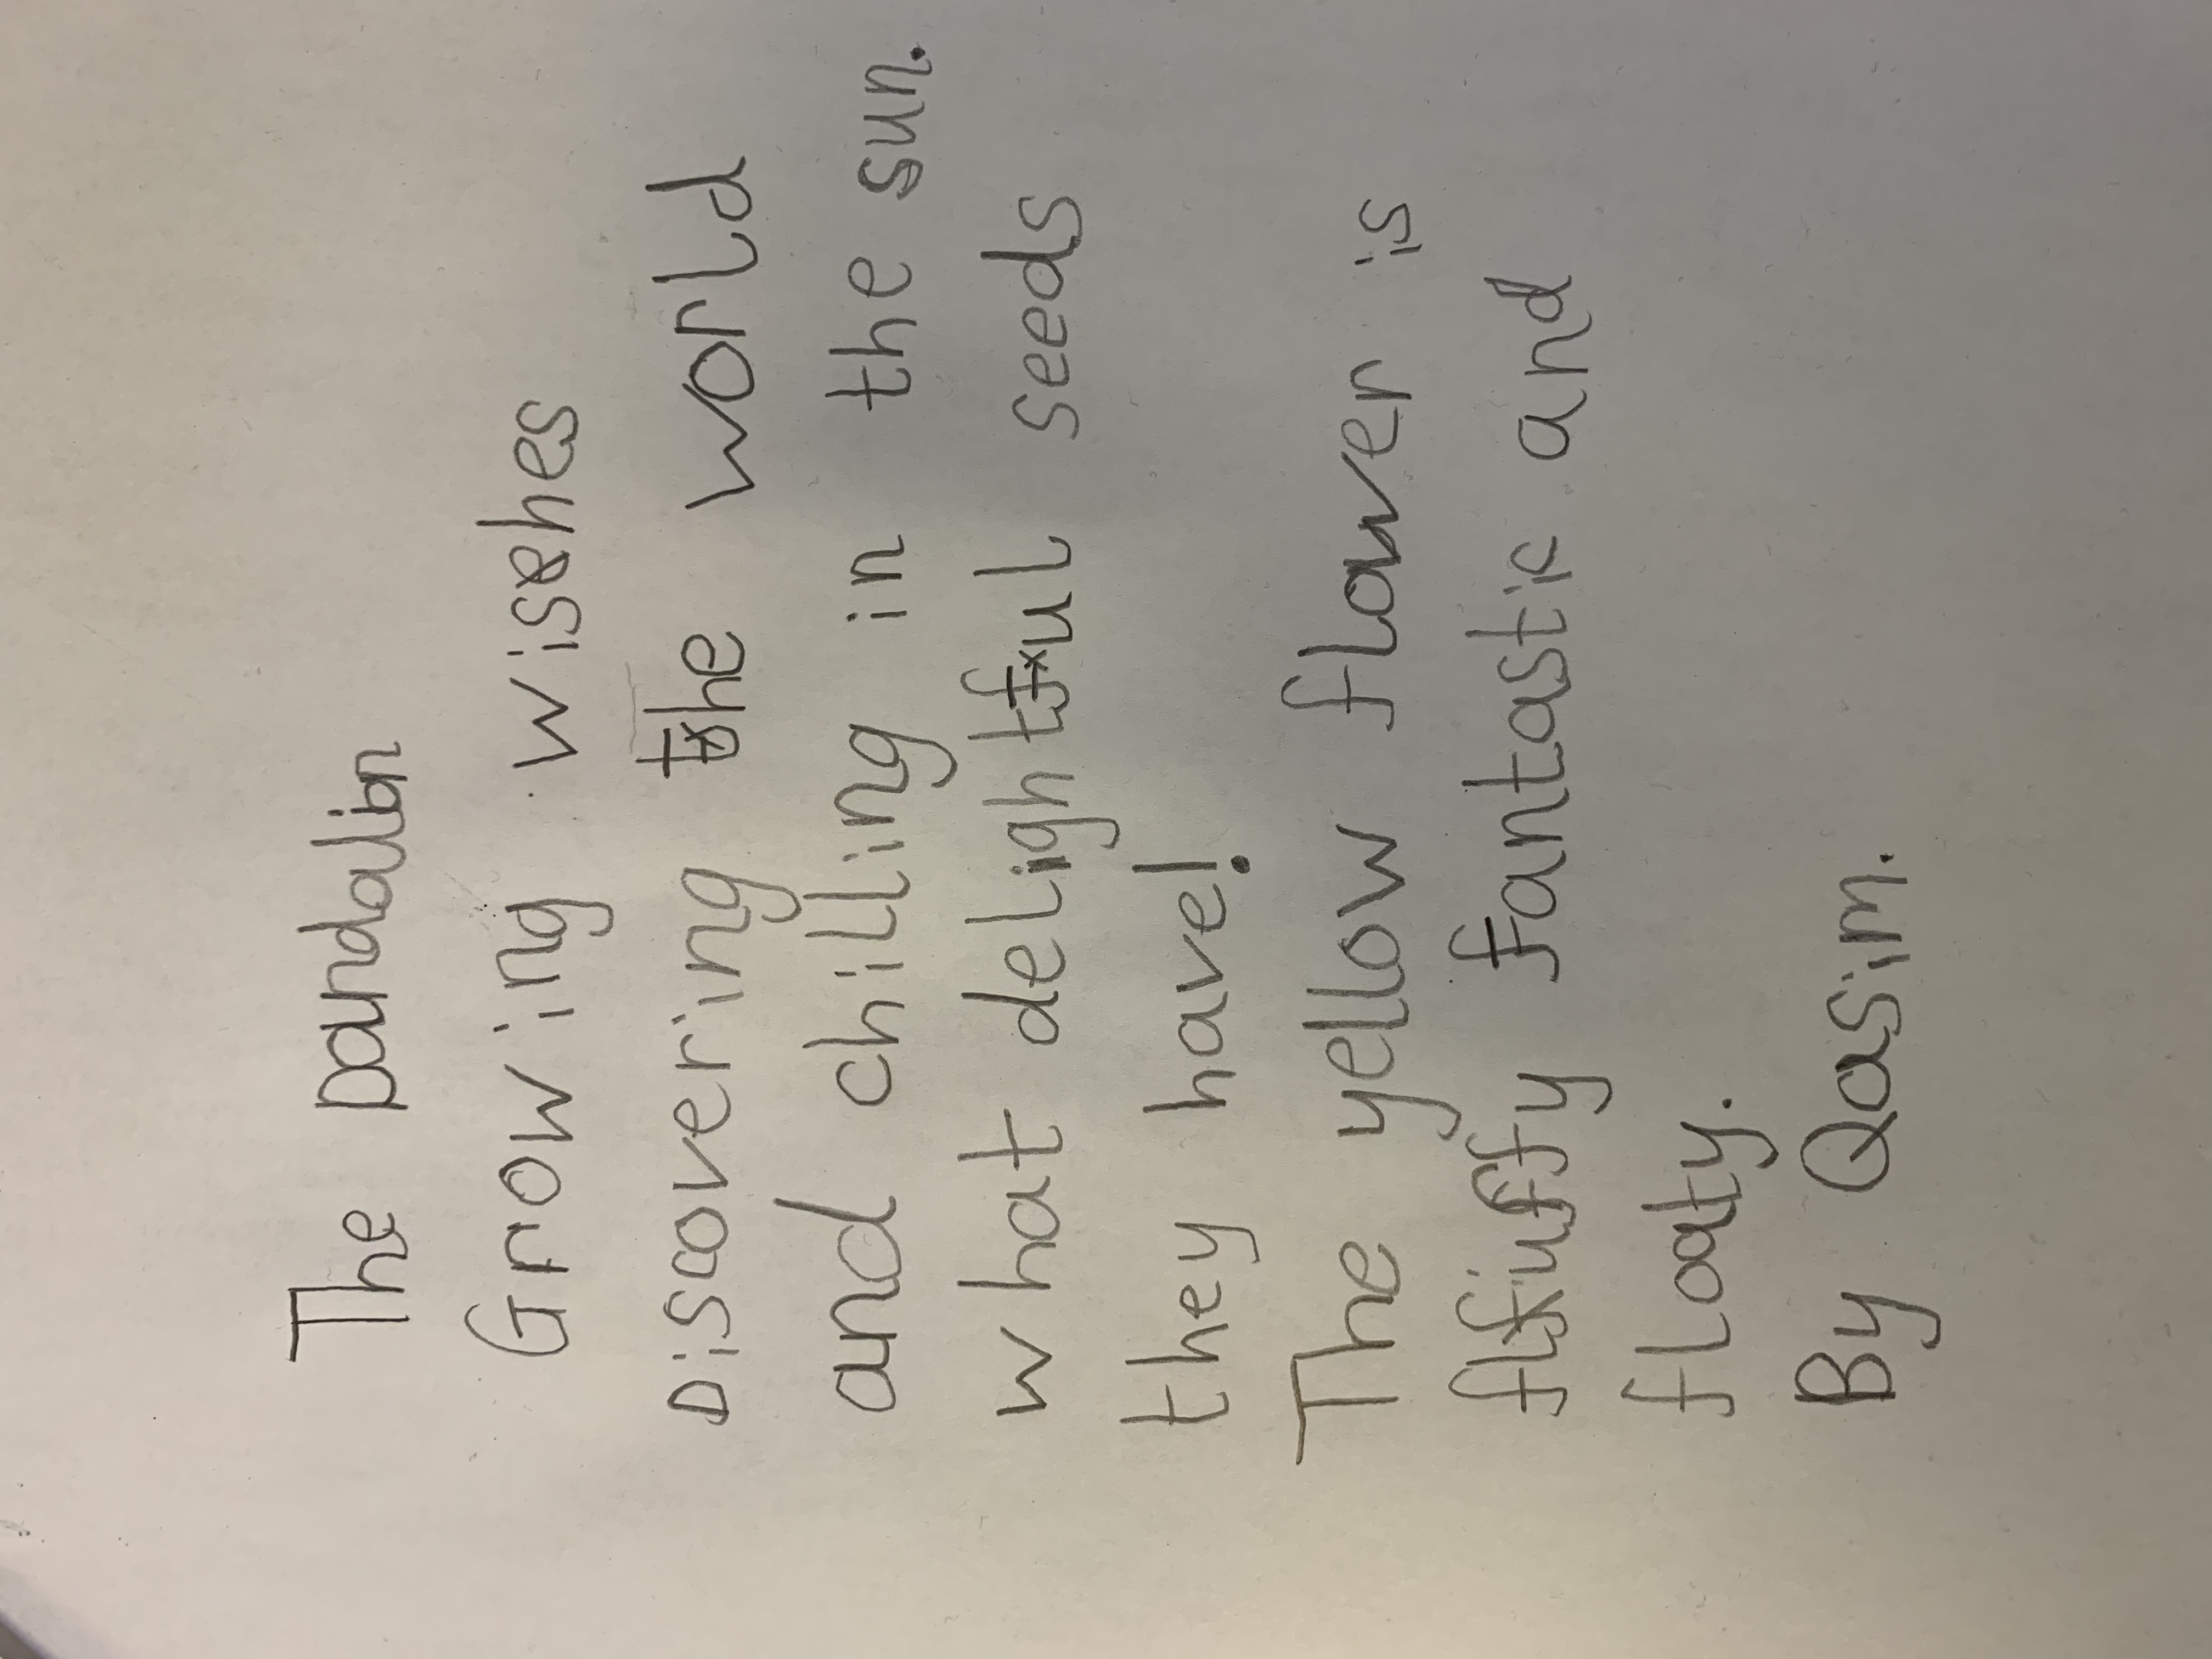 The Dandalion
Growing wishes
Discovering the world
and chilling in the sun.
what delightful seeds
they have!
The yellow flower is
fluffy fantastic and
floaty.
By Qasim.